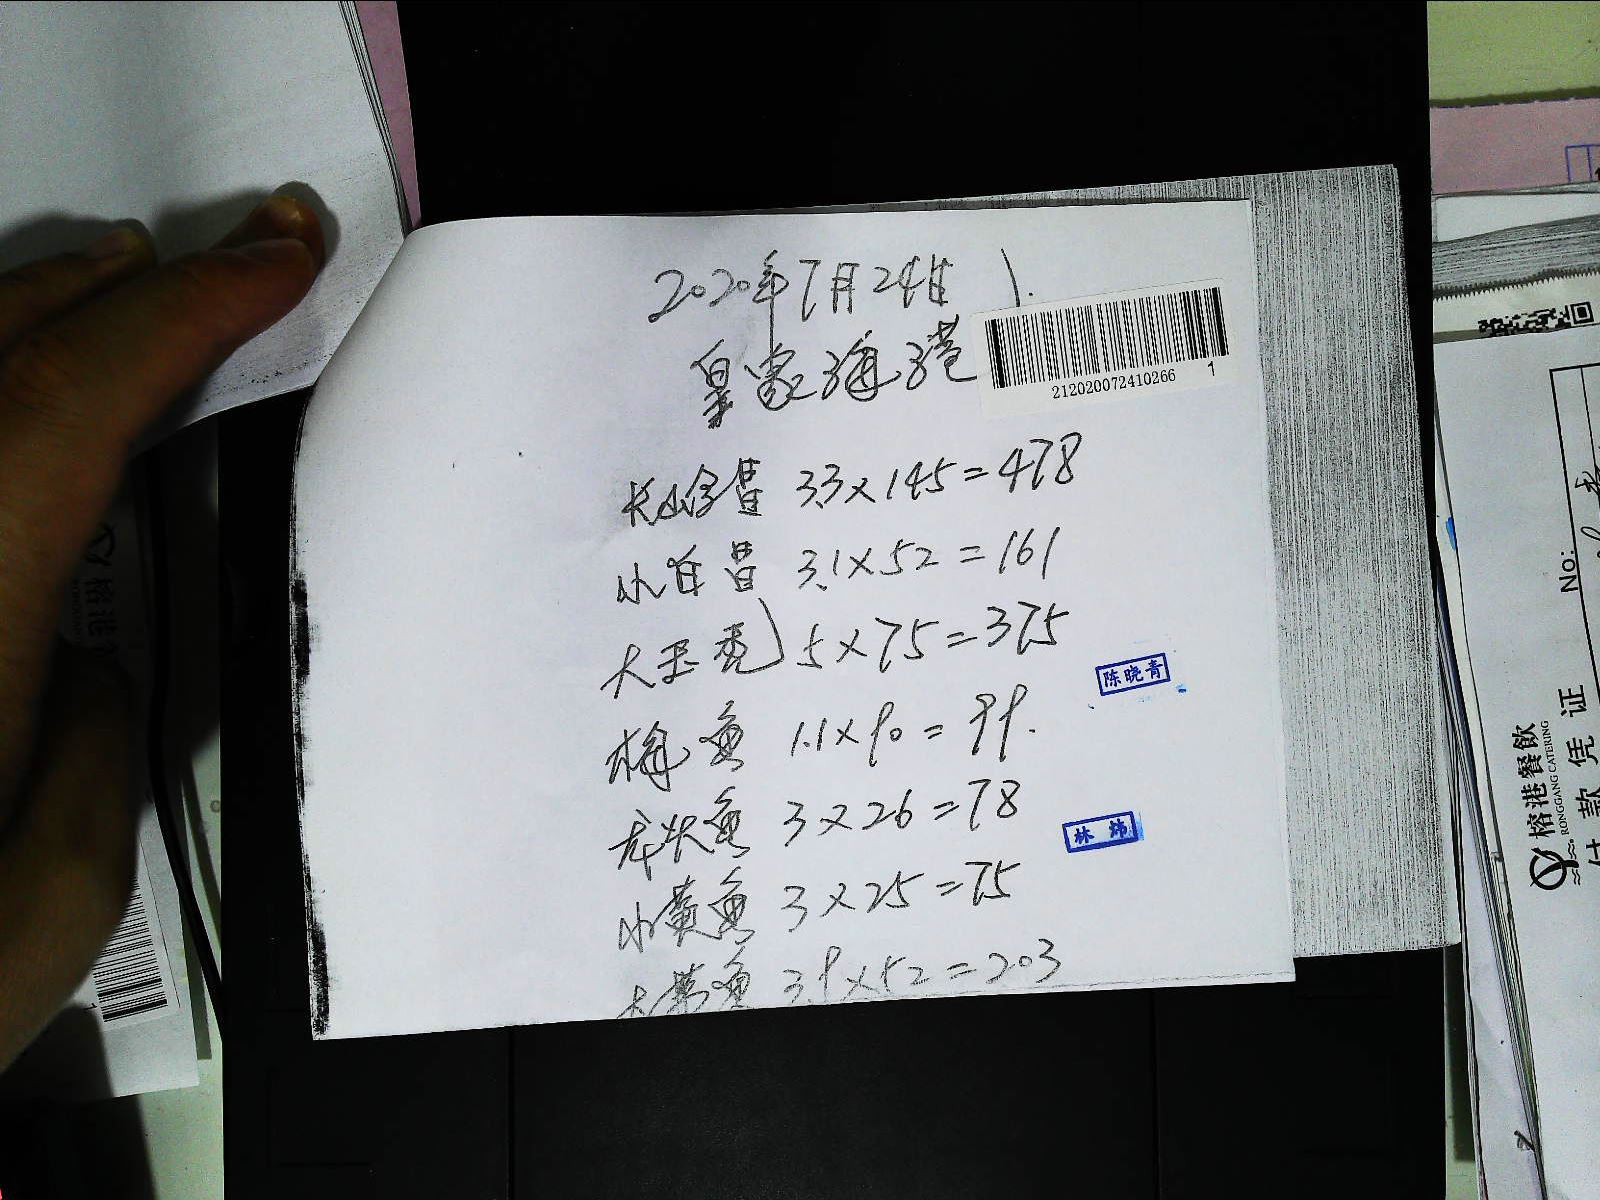 2020年7月24日 1.
皇家海港
212020072410266 1
3.3×145=478
小白 3.1×52=161
大玉秃 5×75=375
梅鱼 1.1×90=99.
龙头鱼 3×26=78
小黄鱼 3×25=75
大带鱼 3.9×52=203
陈晓青
林炜
No:
榕港餐飲
RONGGANG CATERING
付款凭证